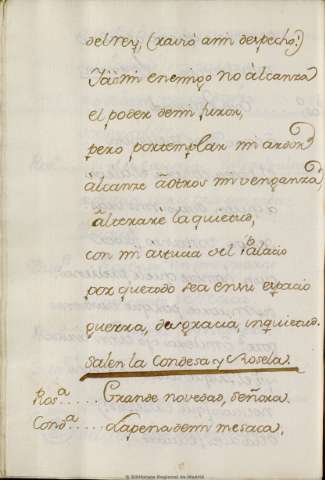 del rey, (rabió a mi despecho!)
Ya à mi enemigo no álcanza
el poder de mi furor,
pero por templar mi ardor
álcanze â otros mi venganza
âlterarè la quietud,
con mi astucia del Palacio
porque todo sea en su espacio
guerra, desgracia, inquietud.
Salen la Condesa y Rosela.
Ros.ª..... Grande novedad, señora.
Cond.ª..... La pena de mi me saca,
© Biblioteca Regional de Madrid